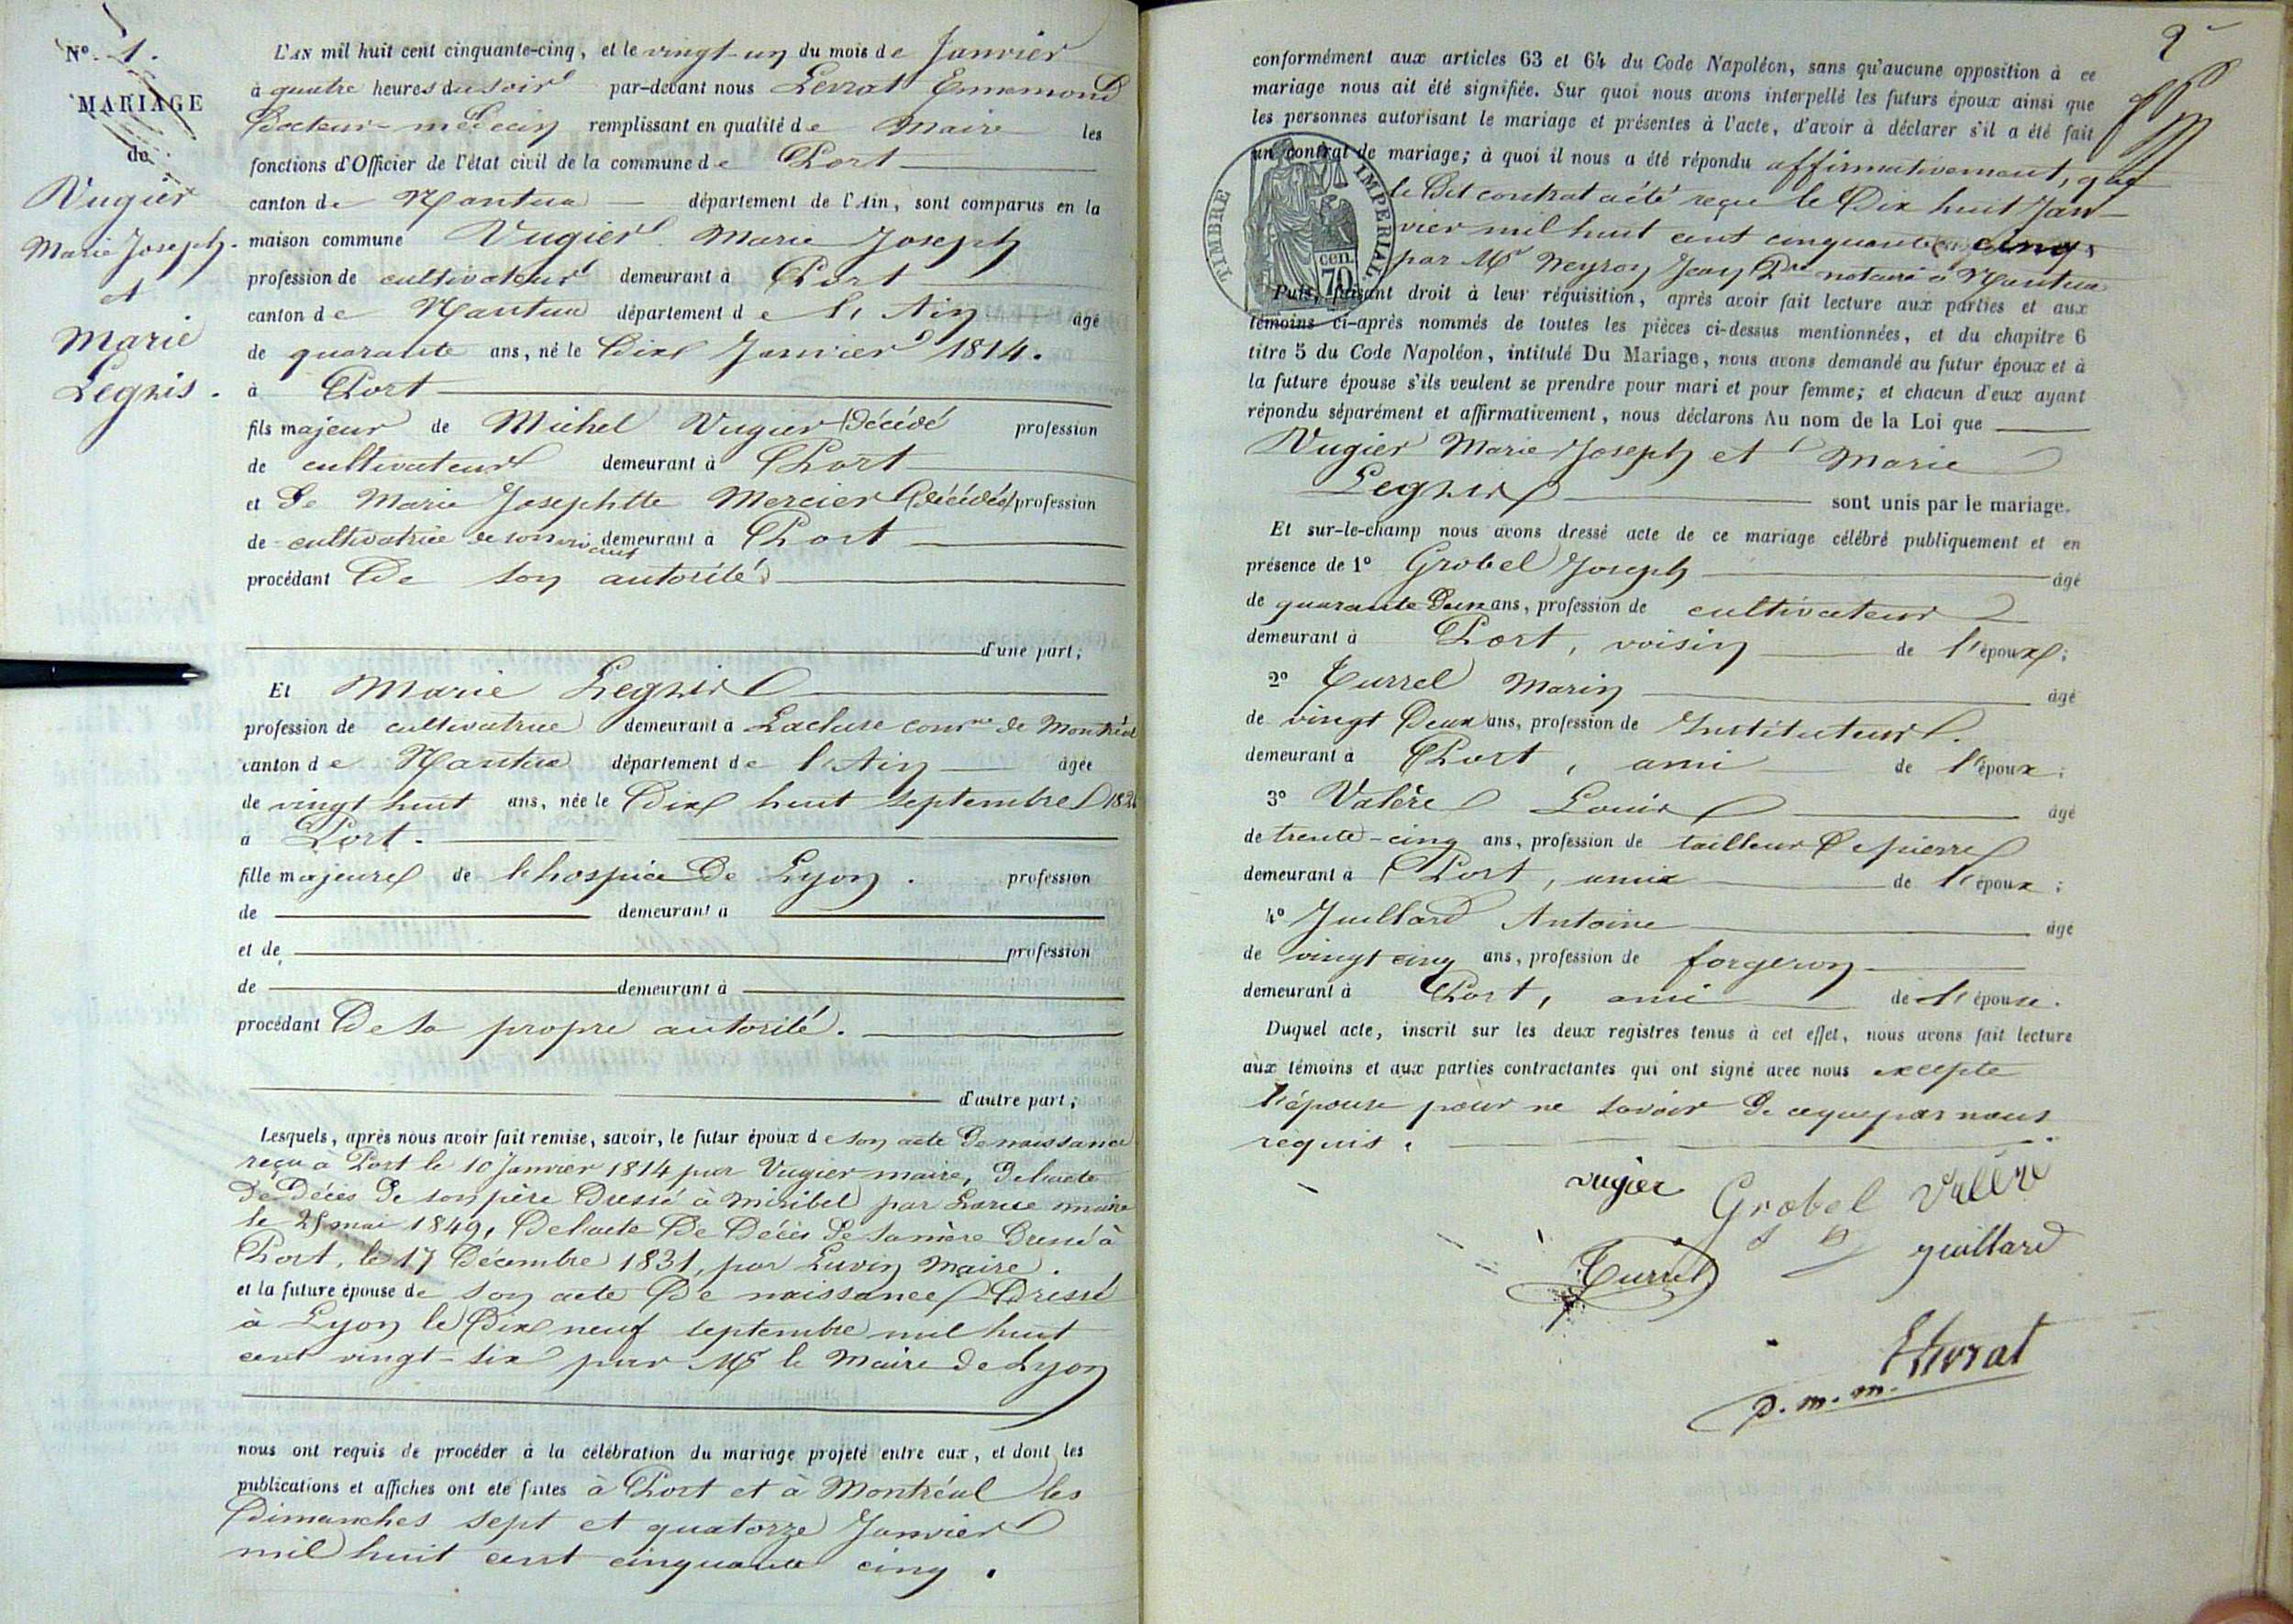 N° 1.
MARIAGE
de
Vugier
Marie Joseph.
et
Marie
Legnis.
L'AN mil huit cent cinquante-cinq, et le vingt-un du mois de Janvier
à quatre heures du soir par-devant nous Levrat Ennemond
Docteur-médecin remplissant en qualité de Maire les
fonctions d'Officier de l'état civil de la commune de Port
canton de Nantua département de l'Ain, sont comparus en la
maison commune Vugier Marie Joseph
profession de cultivateur demeurant à Port
canton de Nantua département de l'Ain âgé
de quarante ans, né le Dix Janvier 1814.
à Port
fils majeur de Michel Vugier (décédé profession
de cultivateur demeurant à Port
et de Marie Josephtte Mercier (décédée) profession
de cultivatrice de son vivant demeurant à Port
procédant De son autorité
d'une part;
Et Marie Legnis
profession de cultivatrice demeurant à Lacluse comne de Montréal
canton de Nantua département de l'Ain âgée
de vingt huit ans, née le Dix huit septembre 182
à Port.
fille majeure de l'hospice De Lyon. profession
de demeurant à
et de profession
de demeurant à
procédant De sa propre autorité.
d'autre part;
Lesquels, après nous avoir fait remise, savoir, le futur époux de son acte de naissance
reçu à Port le 10 Janvier 1814 par Vugier maire, de l'acte
De Décès de son père Dressé à Miribel par Larue maire
le 25 mai 1849, De l'acte De Décès de sa mère Dressé à
Port, le 17 Décembre 1831, par Luvin Maire.
et la future épouse de son acte De naissance Dressé
à Lyon le Dix neuf septembre mil huit
cent vingt-six par Mr le Maire de Lyon
nous ont requis de procéder à la célébration du mariage projeté entre eux, et dont les
publications et affiches ont été faites à Port et à Montréal les
Dimanches sept et quatorze Janvier
mil huit cent cinquante cinq.
2
conformément aux articles 63 et 64 du Code Napoléon, sans qu'aucune opposition à ce
mariage nous ait été signifiée. Sur quoi nous avons interpellé les futurs époux ainsi que
les personnes autorisant le mariage et présentes à l'acte, d'avoir à déclarer s'il a été fait
un contrat de mariage; à quoi il nous a été répondu affirmativement, que
le Dit contrat a été reçu le Dix huit Jan-
vier mil huit cent cinquante cinq,
par Mr Neyroy Jean Pre notaire à Nantua
TIMBRE IMPERIAL
cen.
70
Puis, faisant droit à leur réquisition, après avoir fait lecture aux parties et aux
témoins ci-après nommés de toutes les pièces ci-dessus mentionnées, et du chapitre 6
titre 5 du Code Napoléon, intitulé Du Mariage, nous avons demandé au futur époux et à
la future épouse s'ils veulent se prendre pour mari et pour femme; et chacun d'eux ayant
répondu séparément et affirmativement, nous déclarons Au nom de la Loi que
Vugier Marie Joseph et Marie
Legnis sont unis par le mariage.
Et sur-le-champ nous avons dressé acte de ce mariage célébré publiquement et en
présence de 1° Grobel Joseph âgé
de quarante Deux ans, profession de cultivateur
demeurant à Port, voisin de l'époux;
2° Turrel Marin âgé
de vingt Deux ans, profession de Instituteur.
demeurant à Port, ami de l'époux;
3° Valère Louis âgé
de trente-cinq ans, profession de tailleur De pierre
demeurant à Port, ami de l'époux;
4° Juillard Antoine âgé
de vingt cinq ans, profession de forgeron
demeurant à Port, ami de l'épouse.
Duquel acte, inscrit sur les deux registres tenus à cet effet, nous avons fait lecture
aux témoins et aux parties contractantes qui ont signé avec nous excepte
l'épouse pour ne savoir de ce que par nous
requis.
vugier Grobel Valère
J
Turrel juillard
ELevrat
D. m. m.